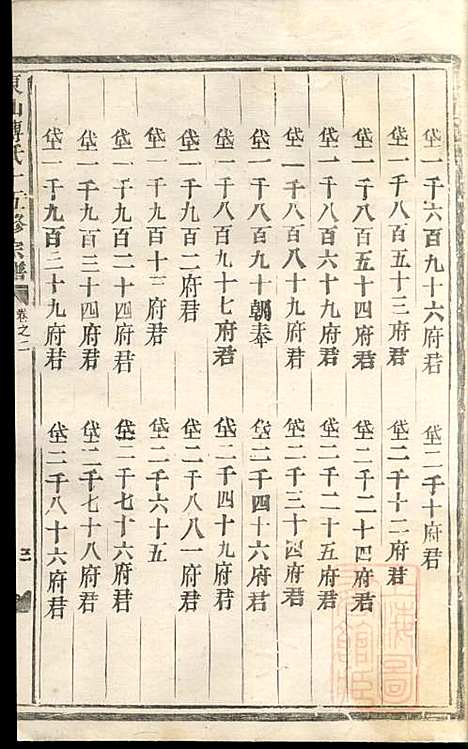 垡一千六百九十六府君　垡二千十府君
垡一千八百五十三府君　垡二千十二府君
垡一千八百五十四府君　垡二千二十四府君
垡一千八百六十九府君　垡二千二十五府君
垡一千八百八十九府君　垡二千三十四府君
垡一千八百九十朝奉　垡二千四十六府君
垡一千八百九十七府君　垡二千四十九府君
垡一千九百二府君　垡二千八八一府君
垡一千九百十三府君　垡二千六十五
垡一千九百二十四府君　垡二千七十六府君
垡一千九百三十四府君　垡二千七十八府君
垡一千九百三十九府君　垡二千八十六府君
氏十五修宗譜　卷之二